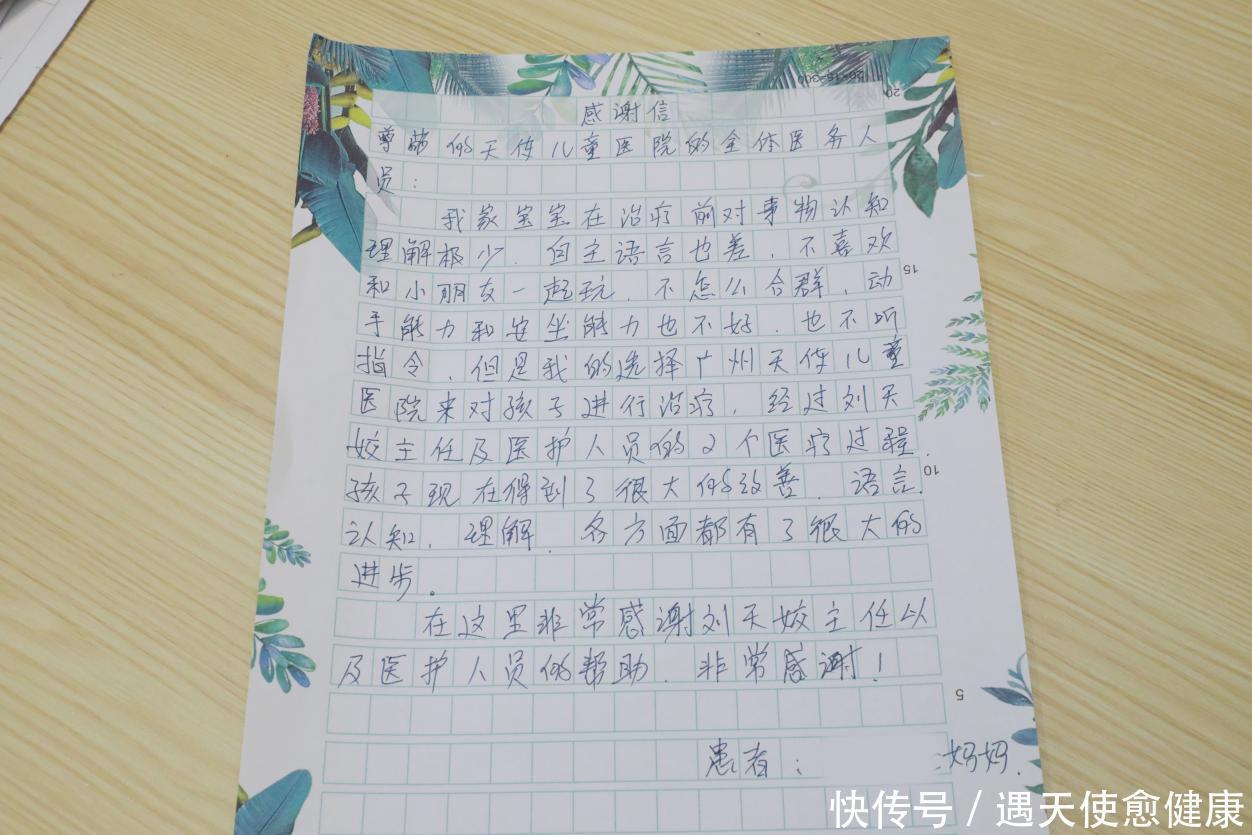 感谢信
尊敬的天使儿童医院的全体医务人
员：
我家宝宝在治疗前对事物认知
理解极少.自主语言也差,不喜欢
和小朋友一起玩.不怎么合群,动
手能力和安坐能力也不好.也不听
指令,但是我的选择广州天使儿童
医院来对孩子进行治疗,经过刘天
姣主任及医护人员的2个医疗过程.
孩子现在得到了很大的改善.语言.
认知,理解.各方面都有了很大的
进步。
在这里非常感谢刘天姣主任以
及医护人员的帮助.非常感谢！
患者： 妈妈.
20×15=300
20
15
10
5
快传号 / 遇天使愈健康